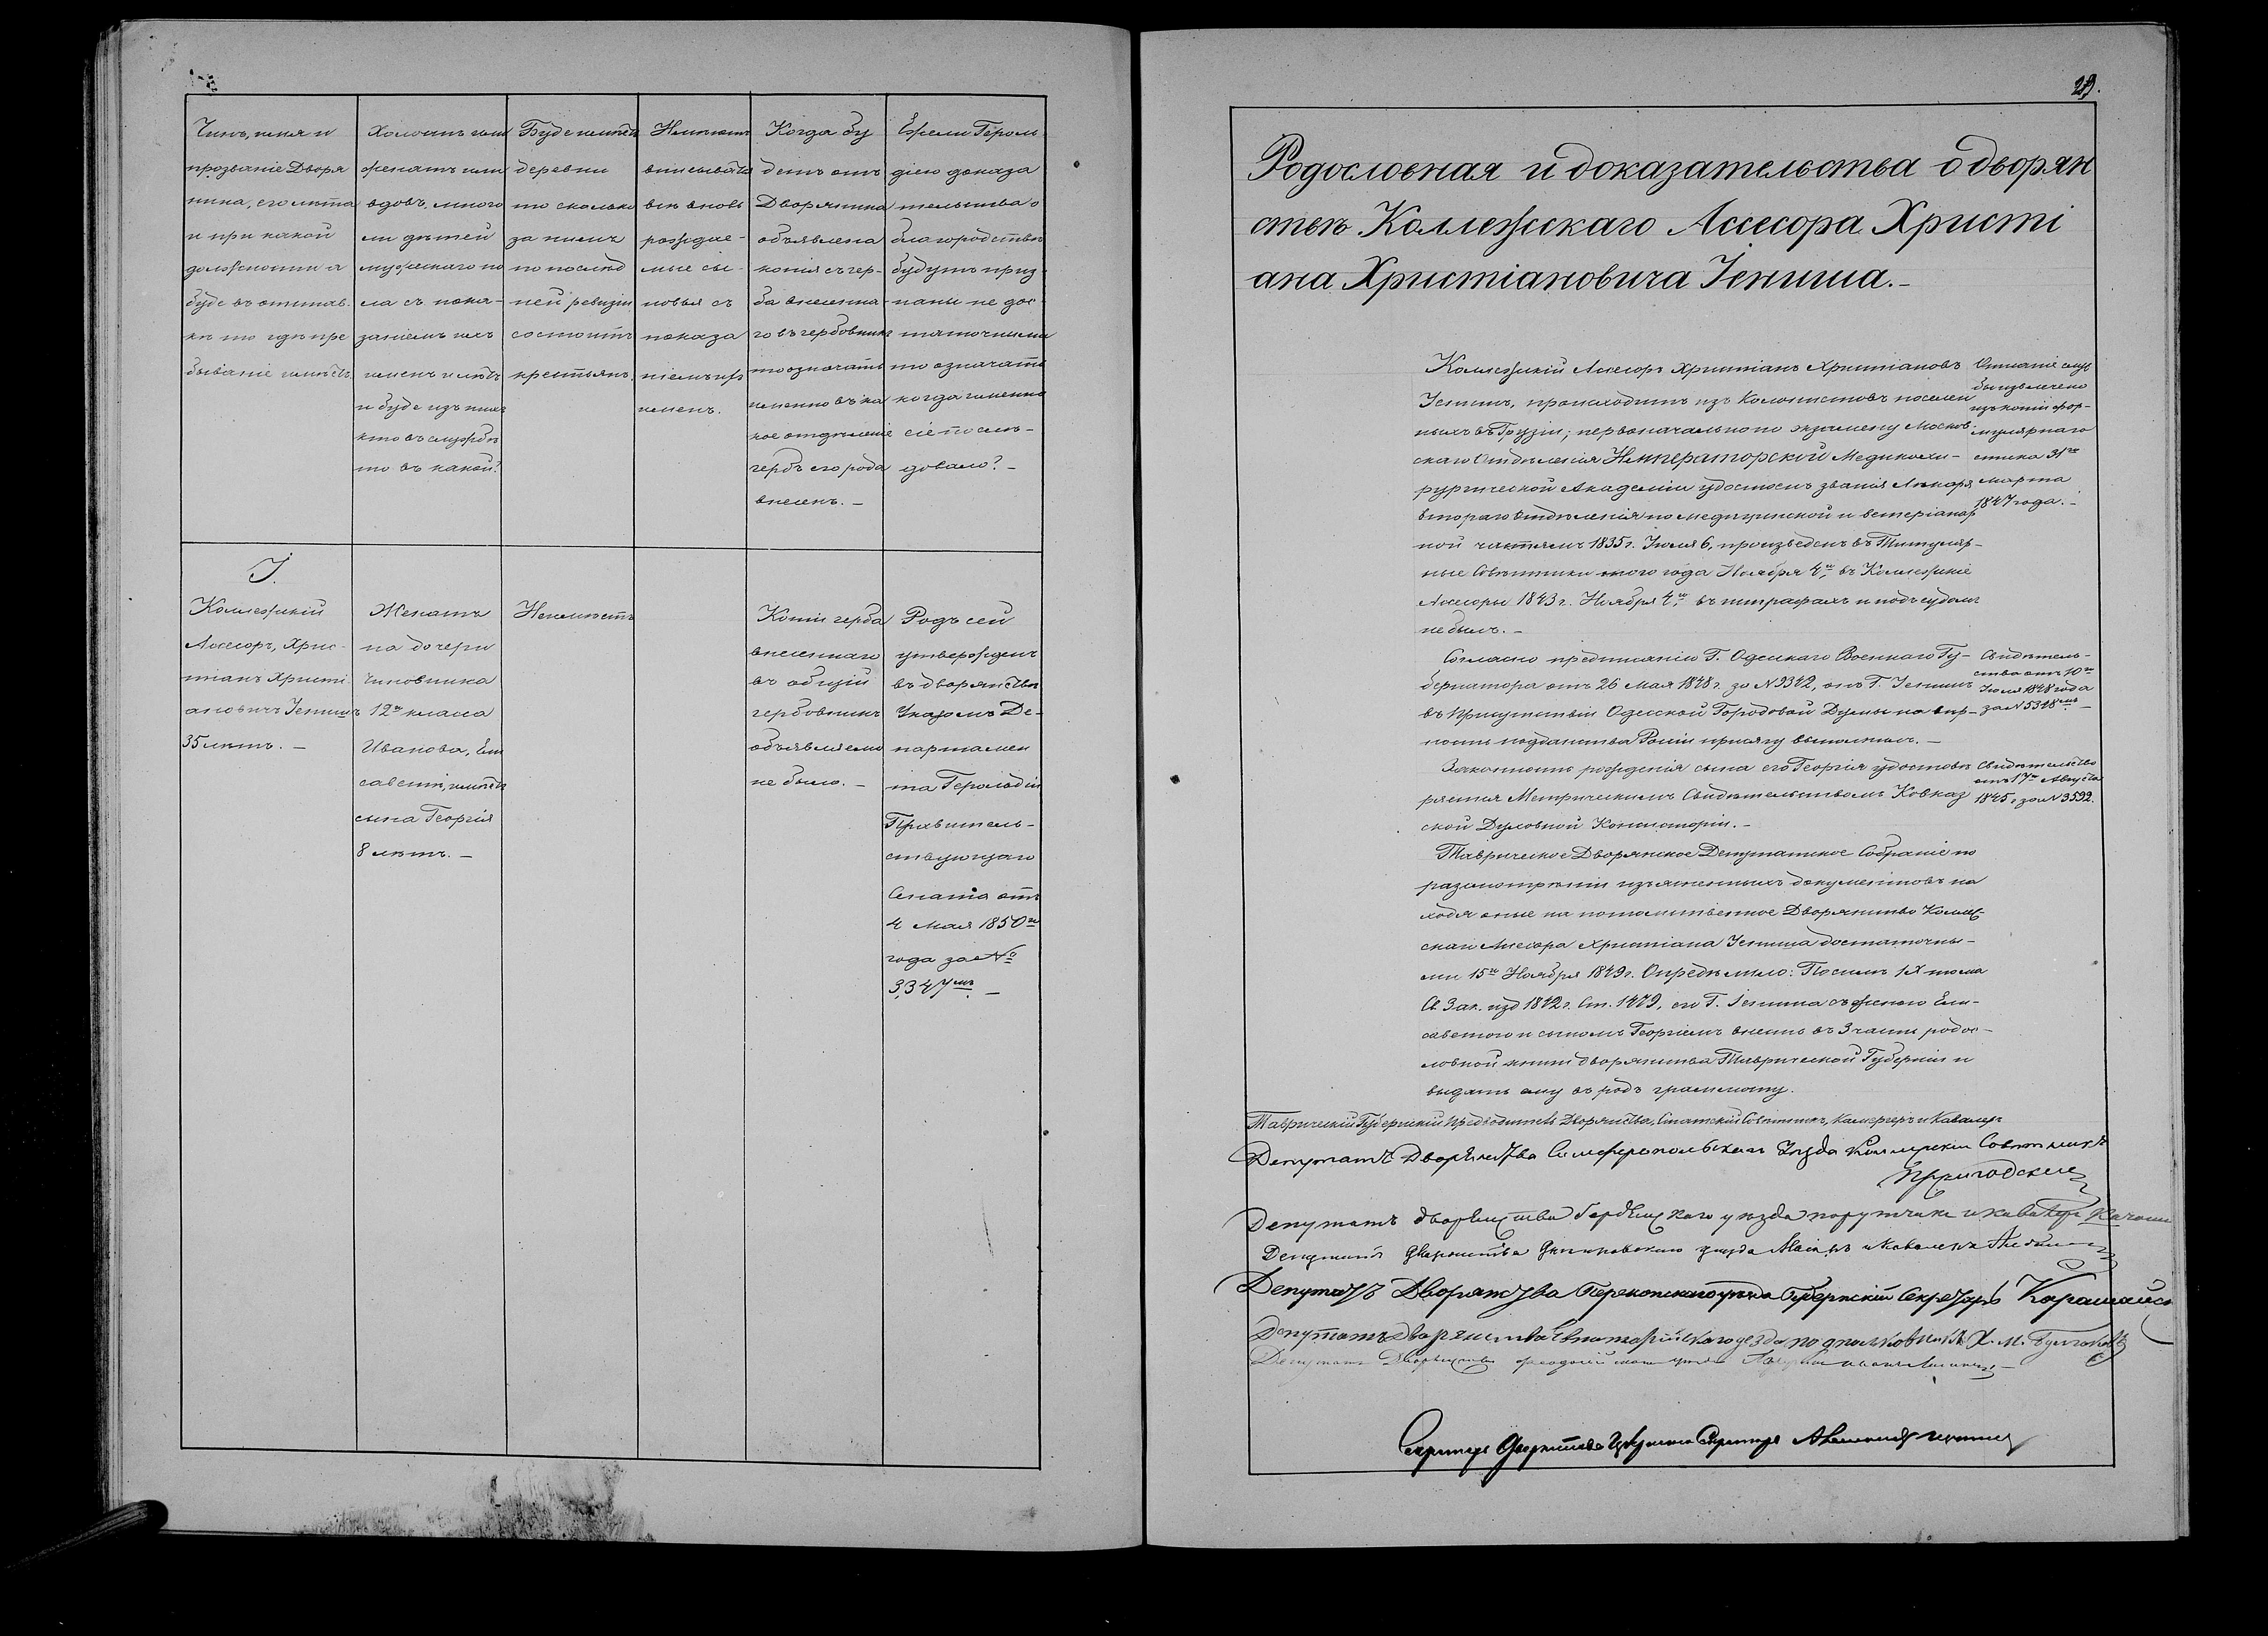 Чинъ, имя и
прозваніе Дворя
нина, его лѣта
и при какой
должности а
буде въ отстав
кѣ то гдѣ пре
бываніе имѣетъ
Холостъ или
женатъ или
вдовъ, много
ли дѣтей
мужескаго по
ла съ пока-
заніемъ ихъ
именъ и лѣтъ
и буде изъ нихъ
кто въ службѣ
то въ какой?
Буде имѣетъ
деревни
то сколько
за нимъ
по послѣд
ней ревизіи
состоитъ
крестьянъ.
Имѣютъ
вписывать
въ вновь
рождае-
мые сы-
новья съ
показа
ніемъ ихъ
именъ.
Когда бу
детъ отъ
Дворянина
объявлена
копія съ гер-
ба внесенна-
го въ гербовникъ
то означать
именно въ ка
кое отдѣленіе
гербъ его рода
внесенъ. —
Ежели Героль
діею доказа
тельства о
благородствѣ
будутъ приз-
наны не дос-
таточными
то означать
когда именно
сіе послѣ-
довало? —
I.
Коллежскій
Ассесоръ, Хрис-
тіанъ Христі
ановичъ Іенишъ
35 лѣтъ. —
Женатъ
на дочери
чиновника
12го класса
Иванова, Ели
саветѣ, имѣетъ
сына Георгія
8 лѣтъ. —
Неимѣетъ
Копіи герба
внесеннаго
въ общій
гербовникъ
объявляемо
не было. —
Родъ сей
утвержденъ
въ дворянствѣ
Указомъ Де-
партамен
та Герольдіи
Правитель-
ствующаго
Сената отъ
4 Мая 1850го
года за №
3,347мъ. —
29.
Родословная и доказательства о дворян
ствѣ Коллежскаго Ассесора Христі
ана Христіановича Іениша. —
Коллежскій Ассесоръ Христіанъ Христіановъ
Іенишъ, происходитъ изъ Колонистовъ поселен
ныхъ въ Грузіи; первоначально по экзамену Москов
скаго Отдѣленія Императорской Медикохи-
рургической Академіи удостоенъ званія Лекаря
втораго Отдѣленія по медицинской и ветеринар
ной частямъ 1835 г. Іюля 6, произведенъ въ Титуляр-
ные Совѣтники того года Ноября 4го, въ Коллежскіе
Ассесоры 1843 г. Ноября 4го, въ штрафахъ и подъ судомъ
не былъ. —
Описаніе служ
бы извлечено
изъ копіи фор-
мулярнаго
списка 31го
марта
1847 года. —
Согласно предписанію Г. Одескаго Военнаго Гу-
бернатора отъ 26 Мая 1848 г. за № 9342, онъ Г. Іенишъ
въ Присутствіи Одесской Городовой Думы на вѣр-
ность подданства Россіи присягу выполнилъ. —
Свидѣтель-
ство отъ 10го
Іюля 1848 года
за № 5348мъ —
Законность рожденія сына его Георгія удостовѣ
ряется Метрическимъ Свидѣтельствомъ Кавказ
ской Духовной Консисторіи. —
Свидѣтельство
отъ 17го Августа
1845 г. за № 3592.
Таврическое Дворянское Депутатское Собраніе по
разсмотрѣніи изъясненныхъ документовъ на
ходя оные на потомственное Дворянство Коллеж-
скаго Ассесора Христіана Іениша достаточны-
ми 15го Ноября 1849 г. Опредѣлило: По силѣ IX тома
Св. Зак. изд 1842 г. Ст. 1479, его Г. Іениша съ женою Ели-
саветою и сыномъ Георгіемъ внести въ 3 часть родос-
ловной книги дворянства Таврической Губерніи и
выдать ему въ родъ граммоту.
Таврическій Губернскій Предводитель Дворянства, Статскій Совѣтникъ, Камергеръ и Кавалеръ
Депутатъ Дворянства Симферопольскаго Уѣзда Коллежскій Совѣтникъ
Депутатъ дворянства Бердянскаго уѣзда поручикъ и кавалеръ
Депутатъ Дворянства Днепровскаго уѣзда Маіоръ и Кавалеръ
Депутатъ Дворянства Перекопскаго уѣзда Губернскій Секретарь
Депутатъ Дворянства Евпаторійскаго уѣзда подполковникъ Х. М. Булгаковъ
Депутатъ Дворянства Феодосійскаго уѣзда
Секретарь Дворянства Губернскій Секретарь